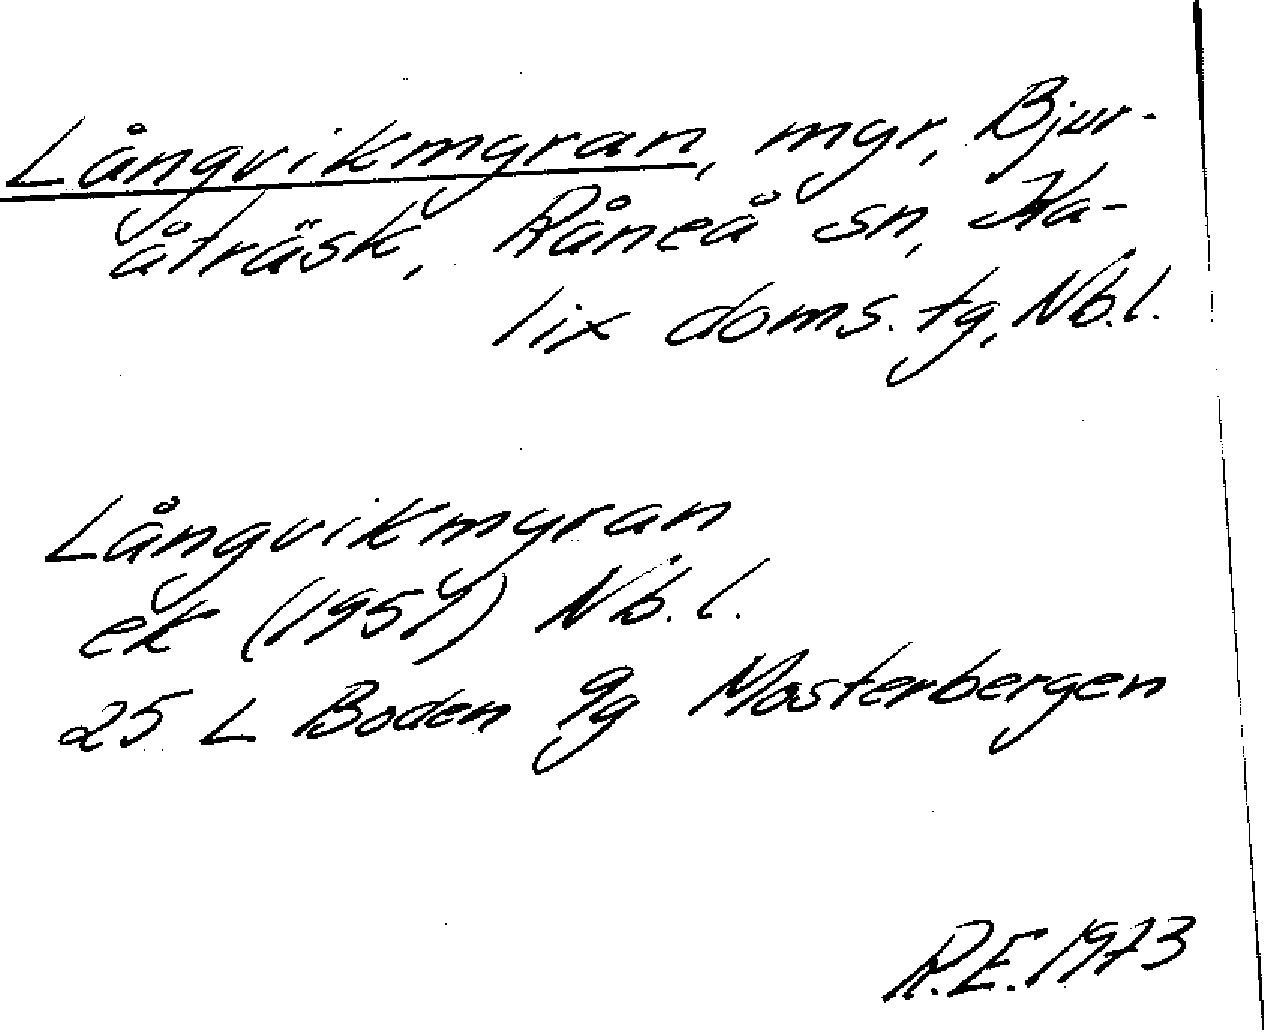 Långvikmyran, myr, Bjur-
åträsk, Råneå sn, Ka-
lix doms. tg, Nb.l.
Långvikmyran
ek (1959) Nb.l.
25 L Boden 9g Mosterbergen
R.E. 1973